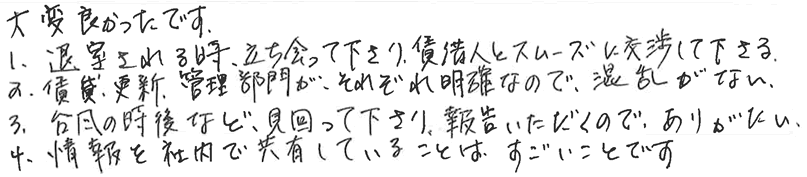 大変良かったです.
1. 退室される時、立ち会って下さり、債借人とスムーズに交渉して下さる.
2. 債貸、更新、管理部門が、それぞれ明確なので、混乱がない.
3. 台風の時後など、見回って下さり、報告いただくので、ありがたい.
4. 情報を社内で共有していることは、すごいことです